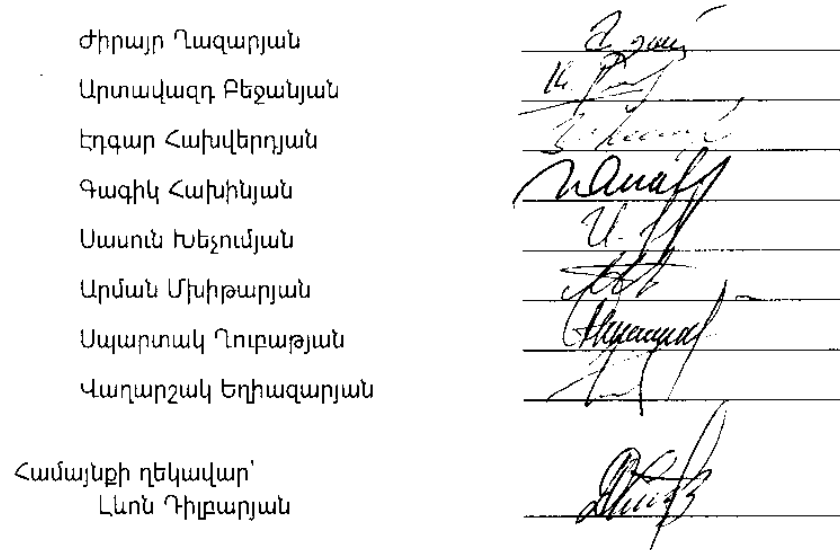 Ժիրայր Ղազարյան
Արտավազդ Բեջանյան
Էդգար Հախվերդյան
Գագիկ Հախինյան
Սասուն Խեչումյան
Արման Մխիթարյան
Սպարտակ Ղուբաթյան
Վաղարշակ Եղիազարյան
Համայնքի ղեկավար՝
Լևոն Դիլբարյան